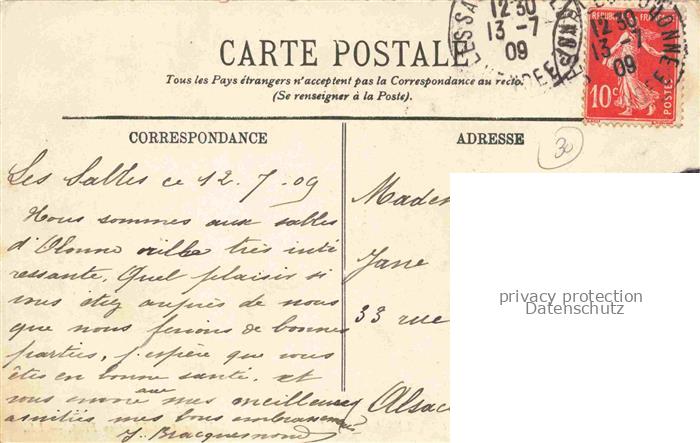 CARTE POSTALE
Tous les Pays étrangers n'acceptent pas la Correspondance au recto.
(Se renseigner à la Poste).
12 30
13 -7
09
12 30
13 -7
09
REPUBLIQUE FRANÇAISE
10c
POSTES
CORRESPONDANCE
ADRESSE
30
Les Sables ce 12.7.09
Nous sommes aux sables
d'Olonne ville très inté
ressante. Quel plaisir si
vous étiez auprès de nous
que nous ferions de bonnes
parties, j'espère que vous
êtes en bonne santé, et
vous envoie avec mes meilleures
amitiés mes bons embrassements
J. Bracquemond
Madem
Jane
33 rue
Alsac
privacy protection
Datenschutz